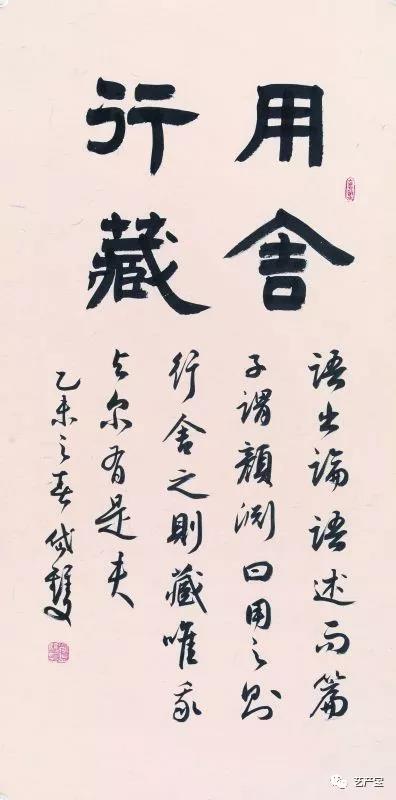 用舍
行藏
語出論語述而篇
子謂顏渊曰用之则
行舍之則藏唯我
与尔有是夫
乙未之春
艺产宝